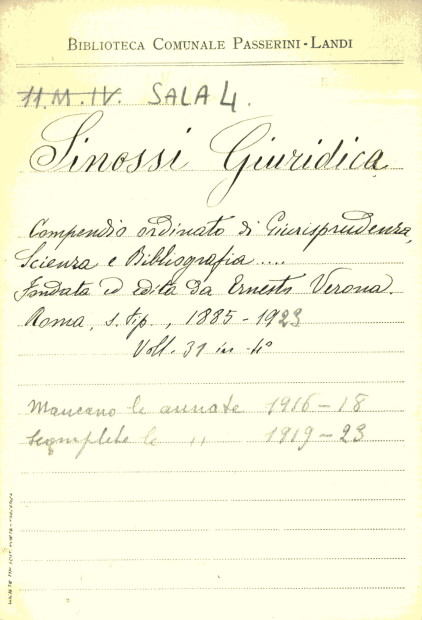 BIBLIOTECA COMUNALE PASSERINI-LANDI
11.M.IV. SALA 4.
Sinossi Giuridica
Compendio ordinato di Giurisprudenza,
Scienza e Bibliografia ....
Fondata ed edita da Ernesto Verona.
Roma, s. tip., 1885-1923
Voll. 31 in-4°
Mancano le annate 1916-18
Incomplete le ,, 1919-23